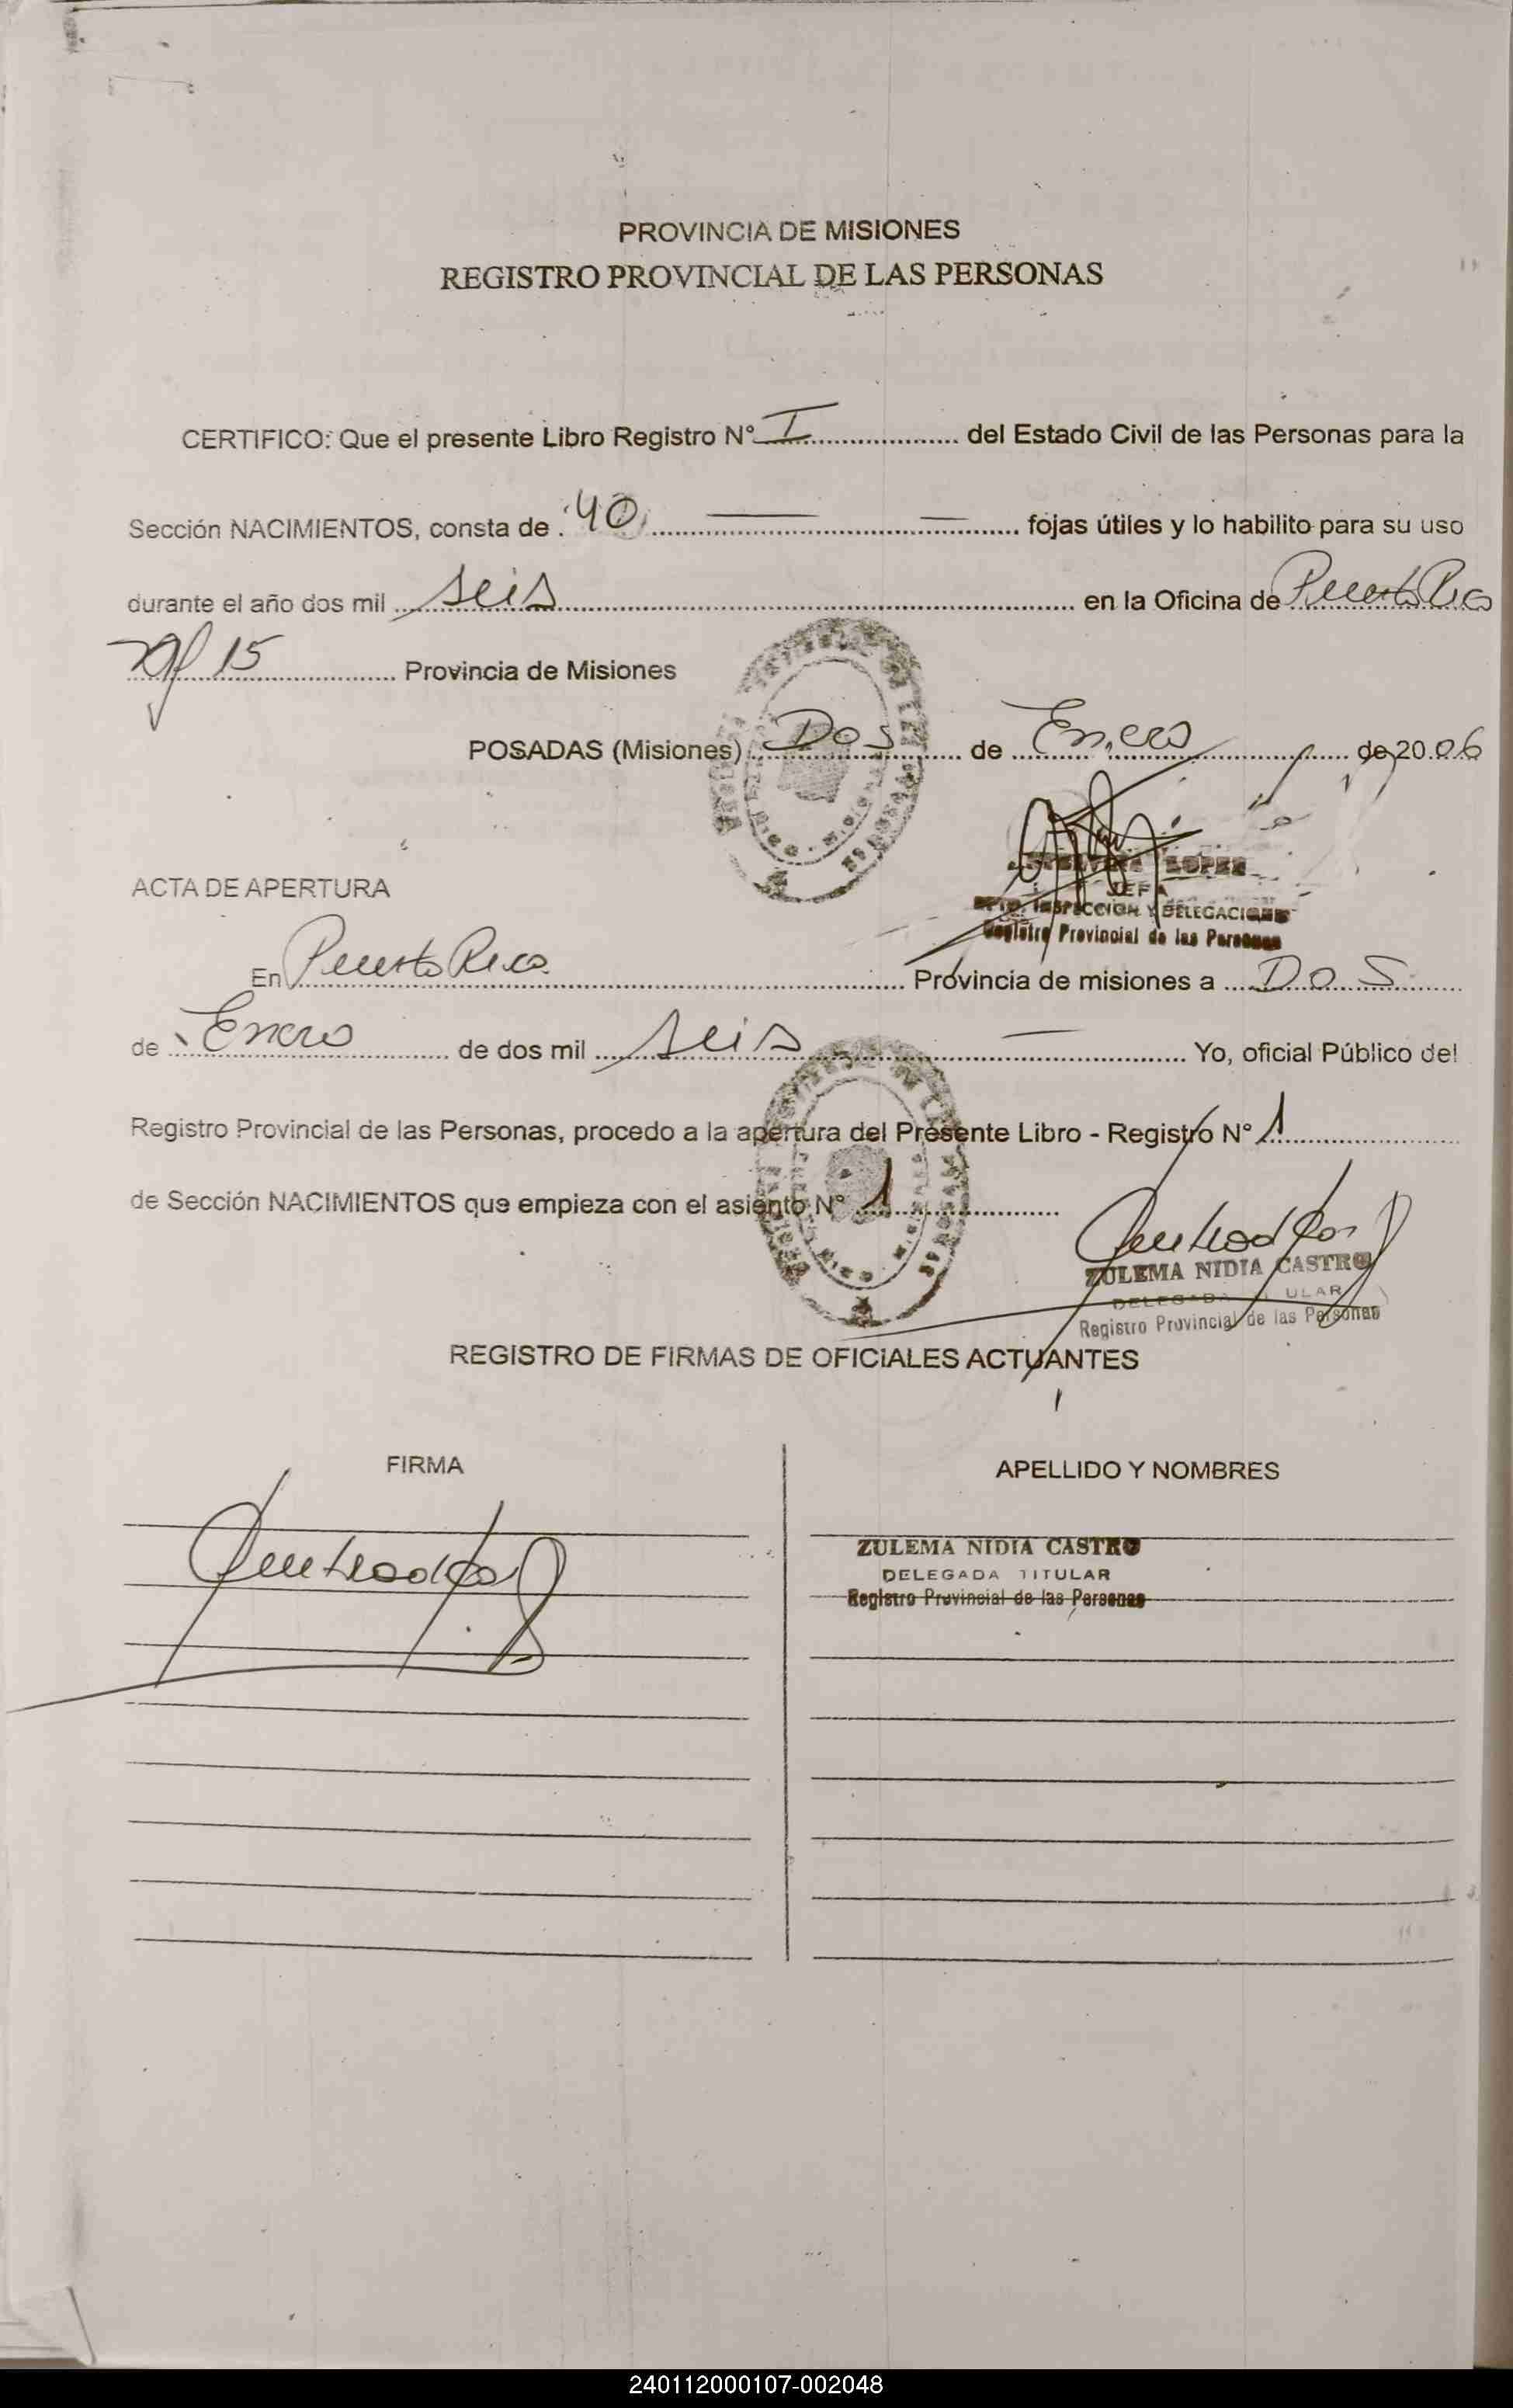 PROVINCIA DE MISIONES
REGISTRO PROVINCIAL DE LAS PERSONAS
CERTIFICO: Que el presente Libro Registro N° I del Estado Civil de las Personas para la
Sección NACIMIENTOS, consta de 40 fojas útiles y lo habilito para su uso
durante el año dos mil seis en la Oficina de Puerto Rico
15 Provincia de Misiones
POSADAS (Misiones) Dos de Enero de 2006
LOPEZ
JEFA
INSPECCION Y DELEGACIONES
Registro Provincial de las Personas
ACTA DE APERTURA
En Puerto Rico Provincia de misiones a Dos
de Enero de dos mil seis Yo, oficial Público del
Registro Provincial de las Personas, procedo a la apertura del Presente Libro - Registro N° 1
de Sección NACIMIENTOS que empieza con el asiento N° 1
ZULEMA NIDIA CASTRO
DELEGADA TITULAR
Registro Provincial de las Personas
REGISTRO DE FIRMAS DE OFICIALES ACTUANTES
FIRMA APELLIDO Y NOMBRES
ZULEMA NIDIA CASTRO
DELEGADA TITULAR
Registro Provincial de las Personas
240112000107-002048